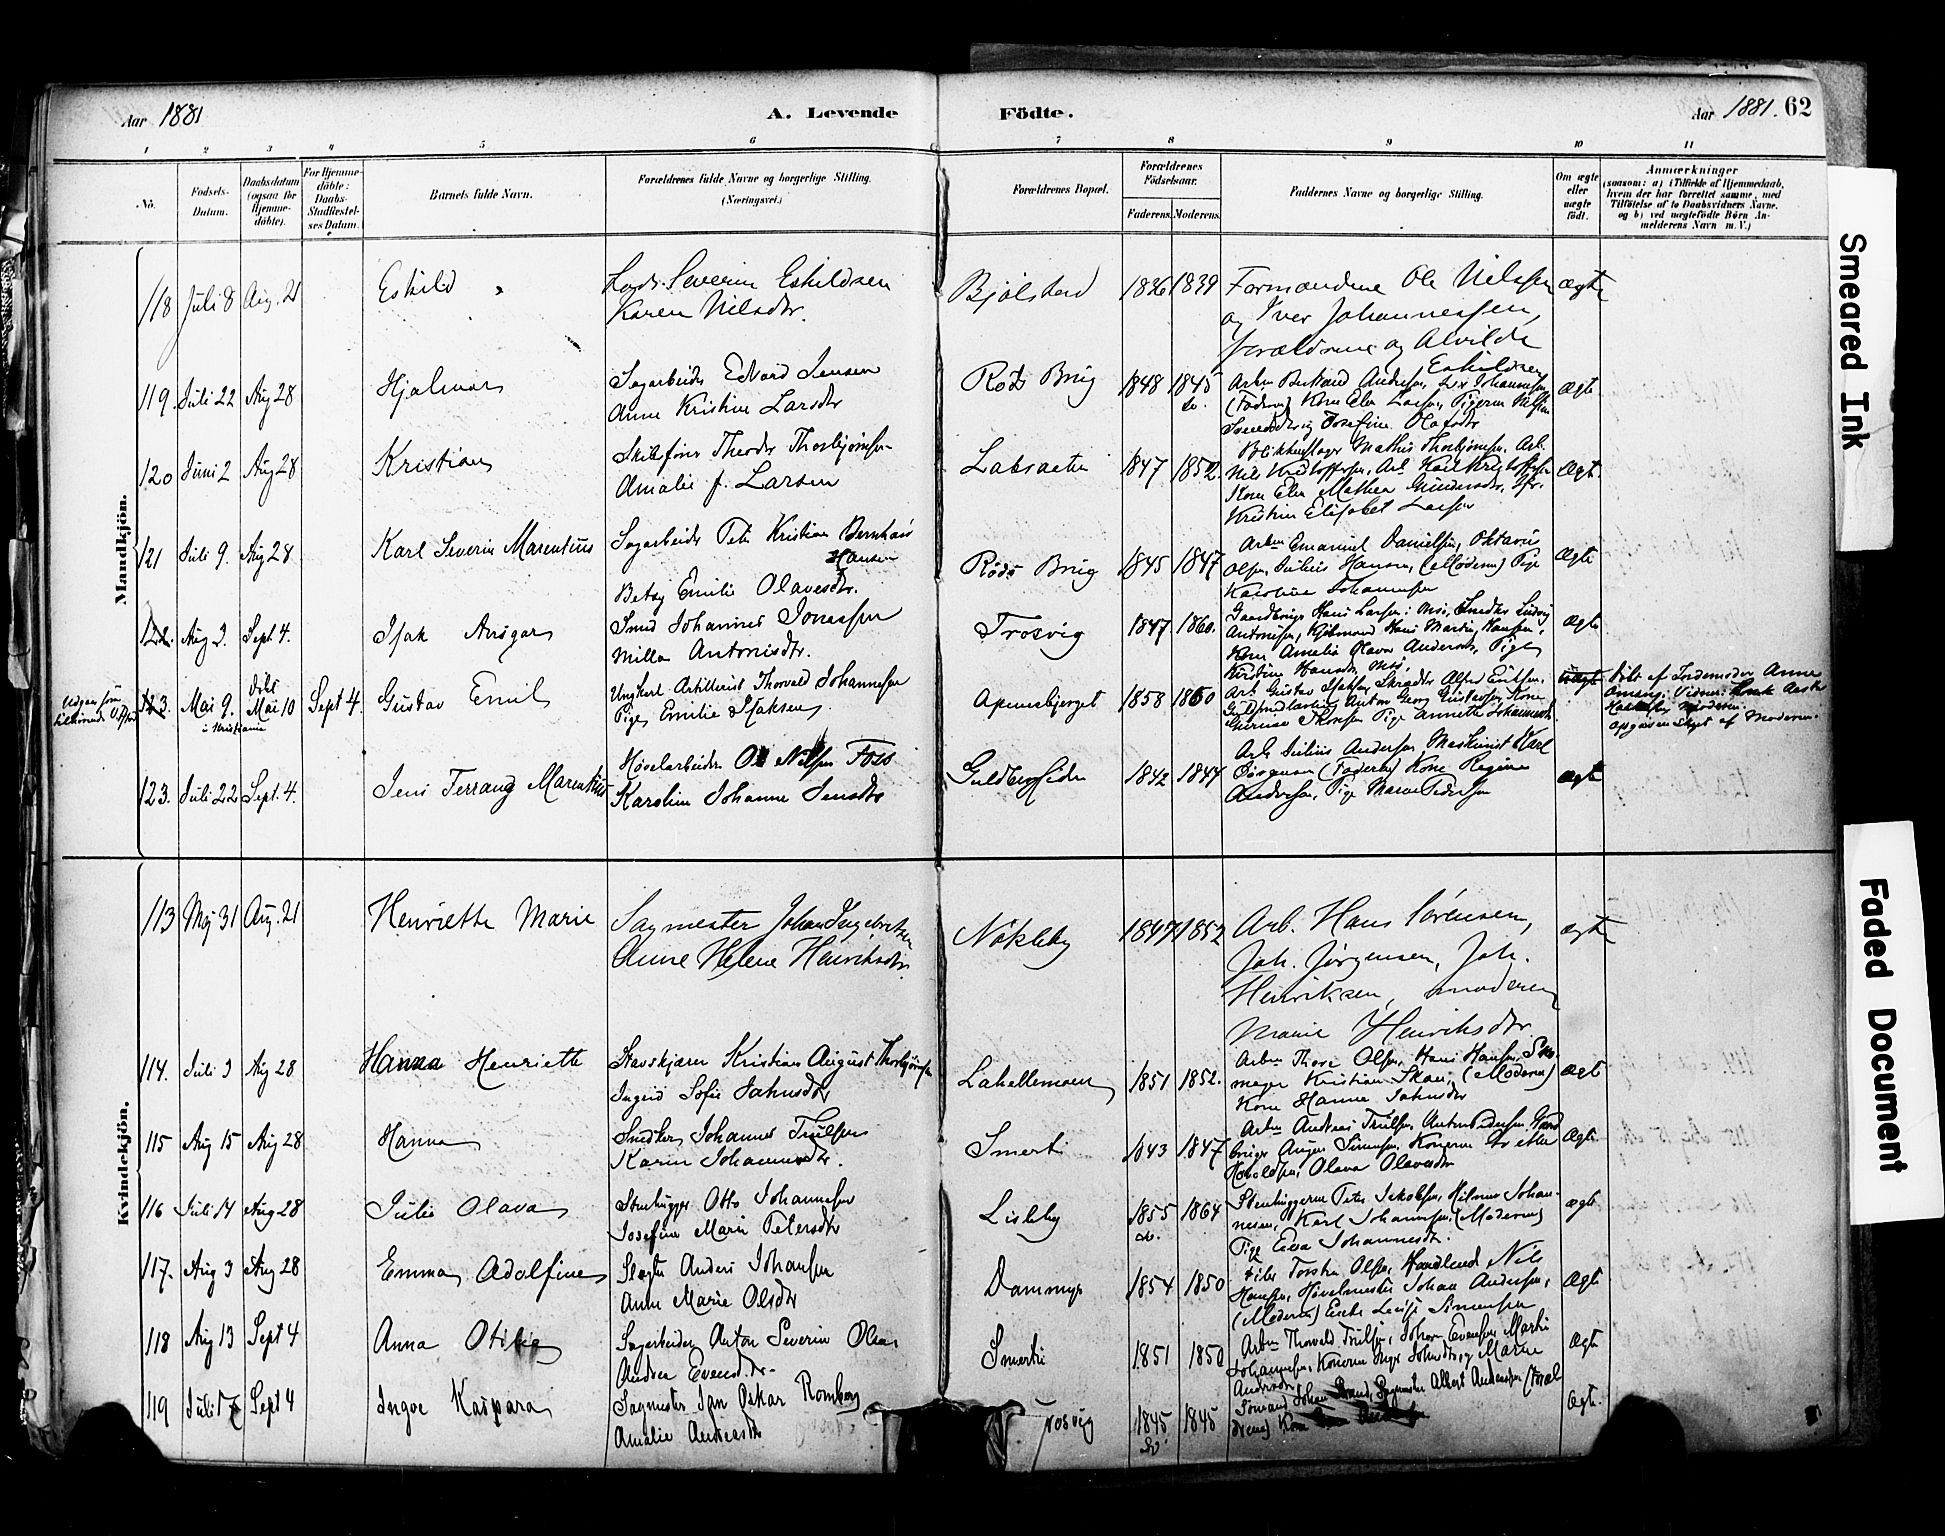 Aar 1881
A. Levende
Födte.
Aar 1881. 62
1 2 3 4 5 6 7 8 9 10 11
No.
Födsels-
Datum.
Daabsdatum
(ogsaa for
Hjemme-
döbte).
For Hjemme-
döbte:
Daabs-
Stadfæstel-
ses Datum.
Barnets fulde Navn.
Forældrenes fulde Navne og borgerlige Stilling.
(Næringsvei.)
Forældrenes Bopæl.
Forældrenes
Födselsaar.
Faderens. Moderens.
Faddernes Navne og borgerlige Stilling.
Om ægte
eller
uægte
födt.
Anmærkninger
(saasom: a) i Tilfælde af Hjemmedaab,
hvem der har forrettet samme, med
Tilföielse af to Daabsvidners Navne,
og b) ved uægtefödte Börn An-
melderens Navn m. V.)
Mandkjön.
118 Juli 8 Aug. 21
Eskild
Severin Eskildsen
Karen Nilsdtr.
Bjölstad
1836 1839
Formændene Ole Nilssen
og Iver Johannessen,
forældrene og Alvilde
Eskildsen
ægte
119. Juli 22 Aug 28
Hjalmar
Sagarbeider Edvard Jensen
Anne Kristine Larsdtr
Röds Brug
1848 1845
Andersen, Johannesen
(Faderen) Kone Larsen, Pigerne
Josefine Olafsdtr
Ægte
120 Juni 2 Aug 28
Kristian
Theodor Thorbjörnsen
Amalie f. Larsen
Labraaten
1847 1852.
Blikkenslager Mathis Thorbjörnsen, Arb.
Nils Kristoffersen, Arb. Karl Kristoffersen
Kone Mathea Gundersdtr,
Kristine Elisabet Larsen
Ægte.
121 Juli 9. Aug 28.
Karl Severin Marentius
Sagarbeider Peter Kristian Bernhard
Hansen
Betsy Emilie Olavesdtr.
Röds Brug
1845 1847
Emanuel Danielsen, Oktavius
Olsen, Julius Hansen, (Moderen) Pige
Karoline Johannesen
Ægte
122. Aug 2. Sept. 4.
Isak Ansgar
Smed Johannes Jonassen
Milla Antonisdtr.
Trosvig
1847 1860.
Gaardbruger Hans Larsen: Snedker Ludvig
Antonisen, Kjöbmand Hans Martin Hansen,
Kone Amalia Olava Andersdtr, Pige
Kirstine Hansdtr
Ægte
123. Mai 9. döbt
Mai 10 Sept 4.
i Kristiania
Gustav Emil
Ungkarl Artillerist Thorvald Johannesen
Pige Emilie Isaksen.
Apenesbjerget
1858 1860
Arb. Gustav Isaksen Skrædder Alfred
Anton Georg Gustavsen, Kone
Pige Annette Johannesdtr
uægte
Döbt af Jordemoder Anne
Vidner:
Moderen.
Opgivelsen skjet af Moderen.
123. Juli 22 Sept. 4.
Jens Terrang Marentius
Hövelarbeider Ole Nilsen Foss
Karoline Johanne Jensdtr
Guldbergsiden
1842 1844
Arb. Julius Andersen Maskinist Karl
Jörgensen (Faderen) Kone Regine
Andersen, Pige Maren Pedersen
Ægte
Kvindekjön.
113 Maj 31 Aug. 21
Henriette Marie
Sagmester Johan Ingebretsen
Anne Helene Henriksdtr.
Nökleby
1847 1852
Arb. Hans Sörensen,
Joh. Jörgensen, Joh.
Henriksen, moderen
Marie Henriksdtr.
ægte
114. Juli 3 Aug 28
Hanna Henriette
Stavskjærer Kristian August Thorbjörnsen
Ingrid Sofie Jahnsdtr
Lahellemoen
1851 1852.
Thore Olsen, Hans Hansen, Sko-
mager Kristian (Moderen)
Kone Hanne Jahnsdtr
Ægte
115 Aug 15 Aug 28
Hanna
Snedker Johannes Trulsen
Karin Johannesdtr.
Smerti
1843 1847
Andreas Trulsen, Anton Pedersen Gaard
bruger August Simensen, Konerne
Olava Olavesdtr
Ægte.
116 Juli 14 Aug 28
Julie Olava
Stenhugger Otto Johannesen
Josefine Marie Petersdtr
Lisleby
1855 1864
Stenhuggerne Peter Jakobsen, Hilmar Johan-
nesen, Karl Johannesen, (Moderen)
Pige Eva Johannesdtr.
ægte
117. Aug 3 Aug 28
Emma Adolfine
Slagter Anders Johansen
Anne Marie Olsdtr
Dammyr
1854 1850
Torsten Olsen, Handlende Nils
Hansen, Hövelmester Johan Andersen,
(Moderen) Enke Lovise Simensen
Ægte
118 Aug 13 Sept 4
Anna Otilie
Sagarbeider Anton Severin Olsen
Andrea Evensdtr.
Smerti
1851 1850
Thorvald Trulsen, Johan Evensen, Martin
Johannesen, Konerne Johnsdtr, og Maren
Andersdtr
Ægte
119 Juli 17 Sept 4
Inga Kaspara
Sagmester Jan Oskar Romberg
Amalie Andersdtr
Trosvig
1845 1845
Johan Strand, Sagmester Albert Andersen (Foræl
drene) Kone
Ægte.
Smeared Ink
Faded Document